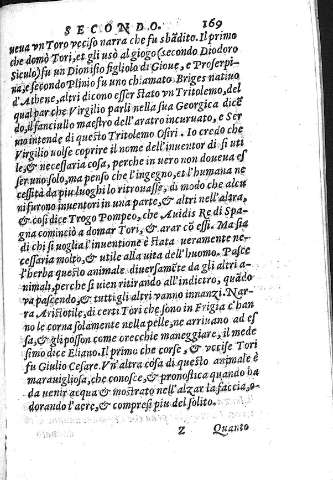 SECONDO. 169
ueua vn Toro vcciso narra che fu sbādito. Il primo
che domò Tori, et gli usò al giogo (secondo Diodoro
Siculo) fu un Dionisio figliolo di Gioue, e Proserpi-
na, e secondo Plinio fu uno chiamato Briges natiuo
d'Athene, altri dicono esser stato vn Tritolemo, del
qual par che Virgilio parli nella sua Georgica dicē
do, il fanciullo maestro dell'aratro incuruato, e Ser
uio intende di questo Tritolemo Osiri. Io credo che
Virgilio uolse coprire il nome dell'inuentor di si uti
le, & necessaria cosa, perche in uero non doueua es
ser uno solo, ma penso che l'ingegno, et l'humana ne
cessità da piu luoghi lo ritrouasse, di modo che alcu
ni furono inuentori in una parte, & altri nell'altra,
& cosi dice Trogo Pompeo, che Auidis Re di Spa-
gna cominciò a domar Tori, & arar cō essi. Ma sia
di chi si uoglia l'inuentione è stata ueramente ne-
cessaria molto, & utile alla uita dell'huomo. Pasce
l'herba questo animale diuersamēte da gli altri a-
nimali, perche si uien ritirando all'indietro, quādo
ua pascendo, & tutti gli altri vanno innanzi. Nar-
ra Aristotile, di certi Tori che sono in Frigia c'han
no le corna solamente nella pelle, ne arriuano ad es
sa, & gli posson come orecchie maneggiare, il mede
simo dice Eliano. Il primo che corse, & vccise Tori
fu Giulio Cesare. Vn'altra cosa di questo animale è
marauigliosa, che conosce, & pronostica quando ha
da uenir acqua & mostrato nell'alzar la faccia, o-
dorando l'aere, & compresi piu del solito.
Z Quanto